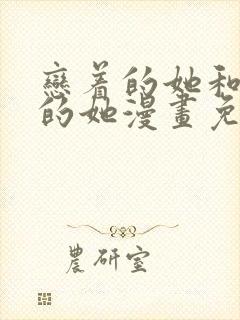 戀着的她和
的她漫畫免
農研室